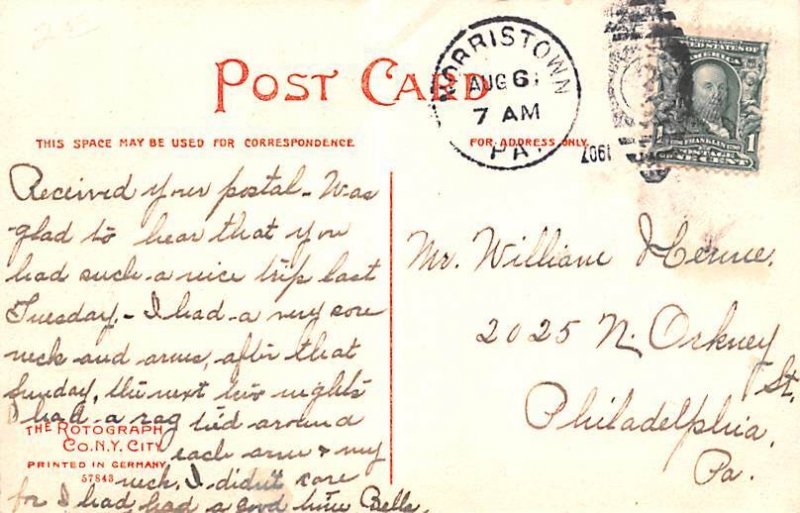 POST CARD
MORRISTOWN
AUG 6
7 AM
PA.
1907
UNITED STATES OF
AMERICA
FRANKLIN
1 1
POSTAGE
ONE CENT
THIS SPACE MAY BE USED FOR CORRESPONDENCE
FOR ADDRESS ONLY.
Received your postal - Was
glad to hear that you
had such a nice trip last
Tuesday, - I had a very sore
neck and arms, after that
Sunday, the next two nights
I had a rag tied around
each arm & my
neck. I didn't care
for I had, had a good time Belle.
Mr. William
2025 N. Orkney
St.
Philadelphia.
Pa.
THE ROTOGRAPH
CO. N.Y. CITY
PRINTED IN GERMANY
57843